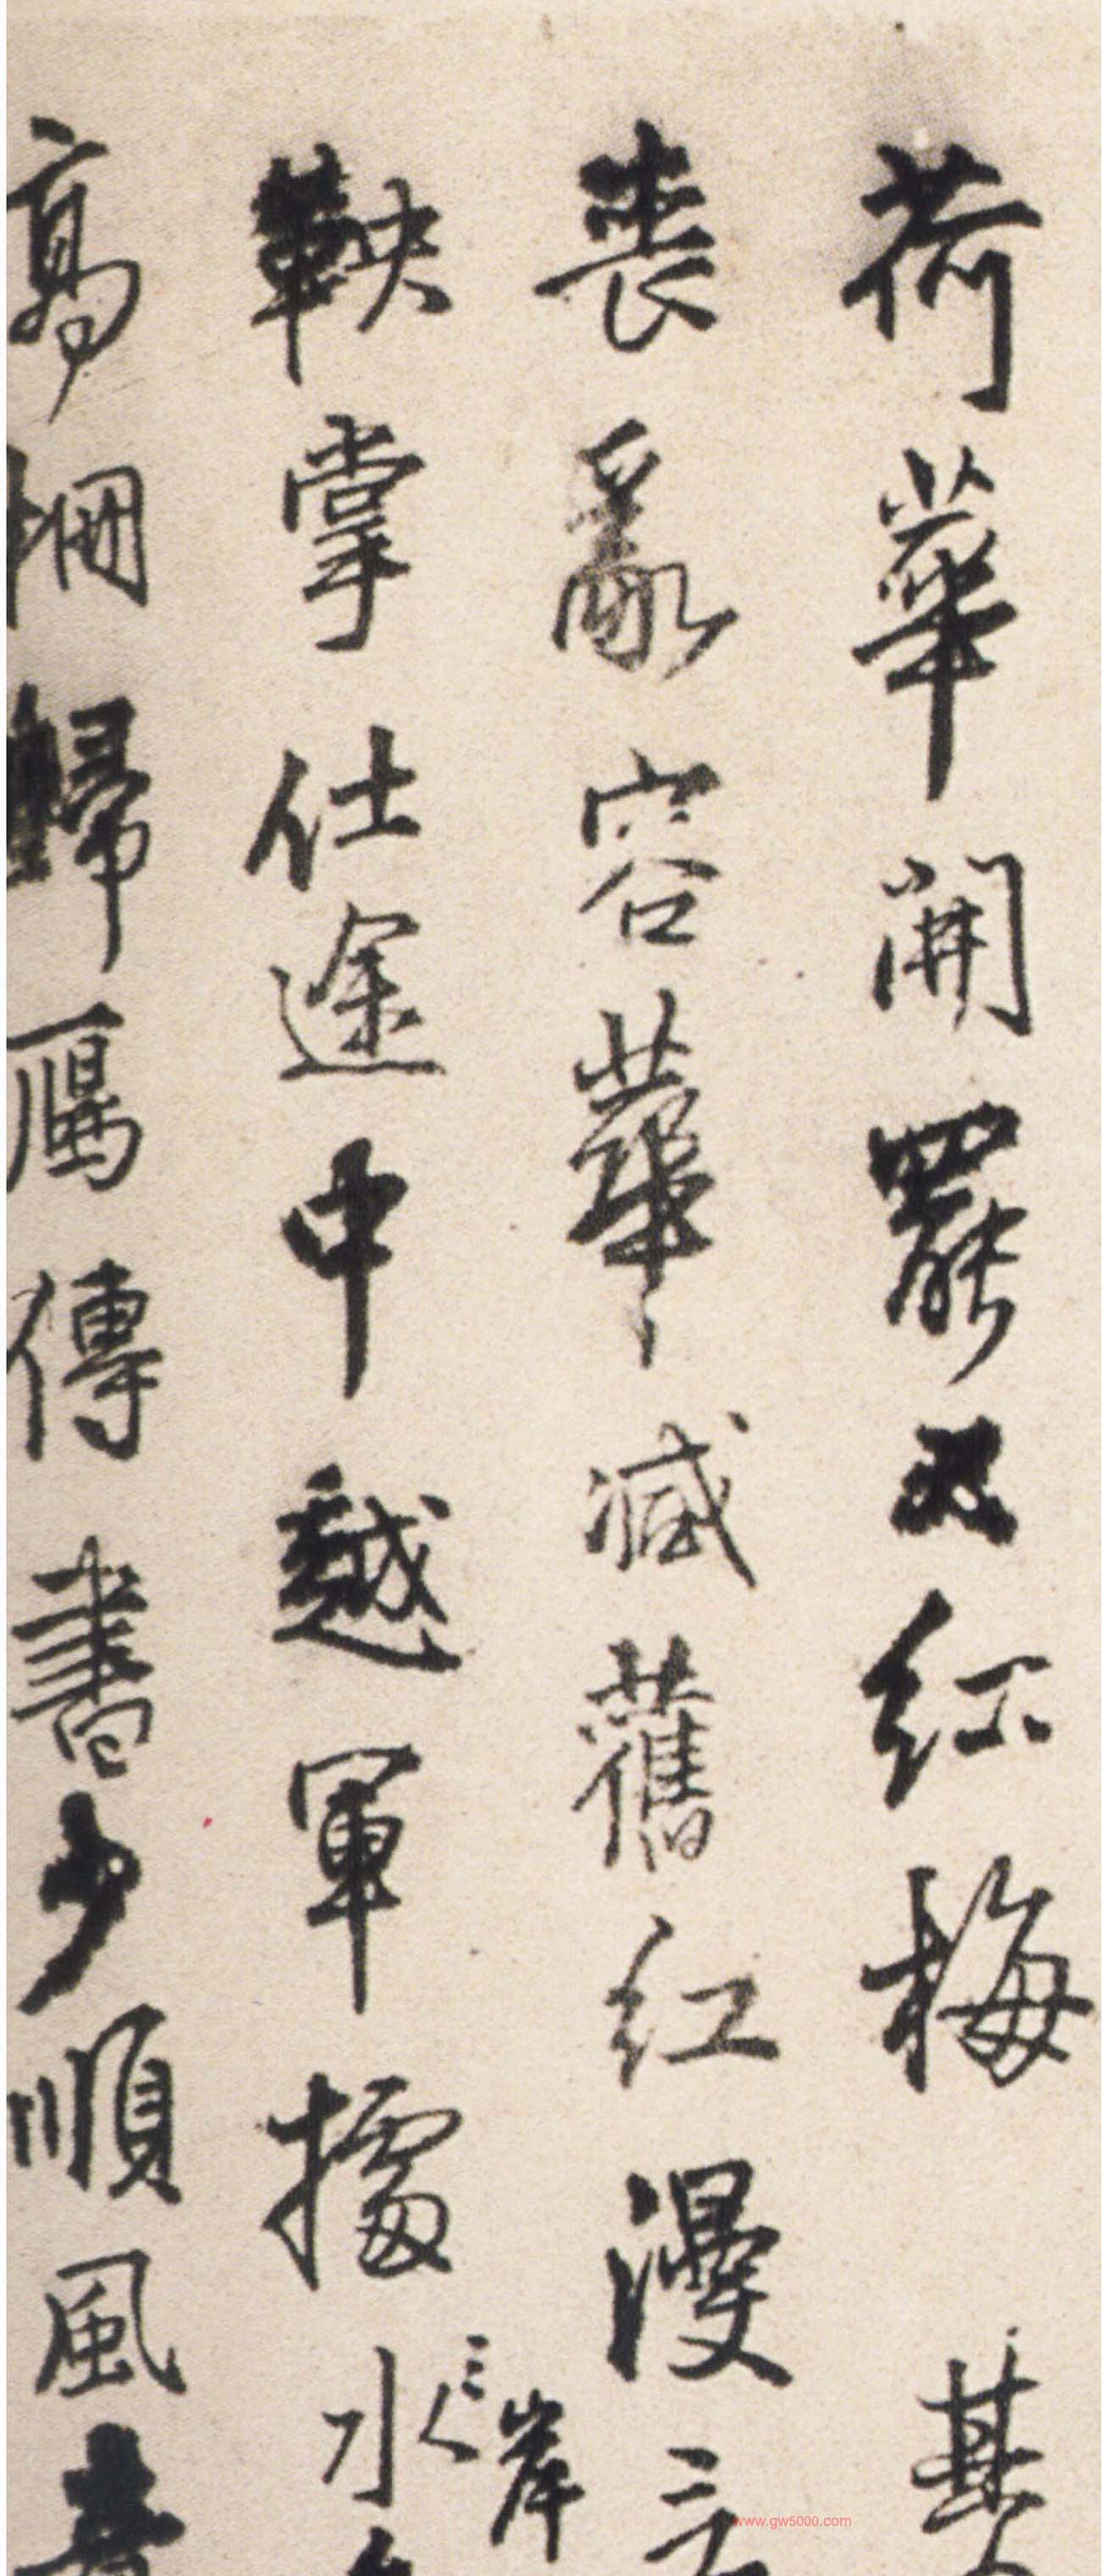 荷華開罷又紅梅 其
喪亂容華減舊紅漫
岸三
鞅掌仕途中越軍擂水
高棚歸屬傳書少順風
www.gw5000.com